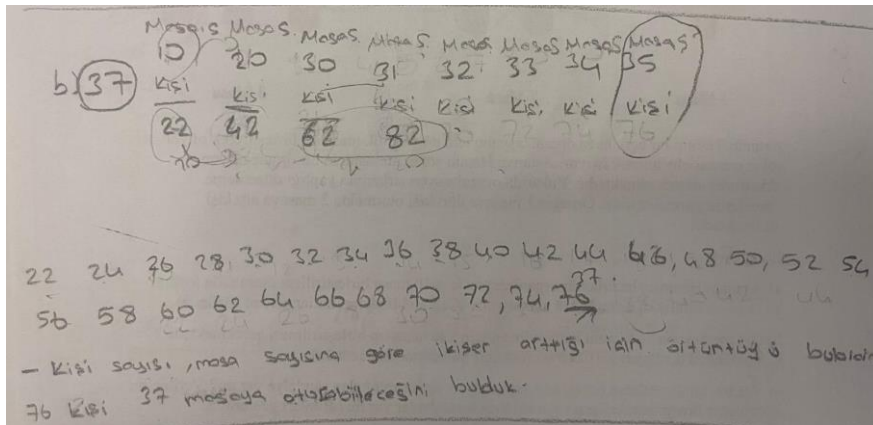 Masa S. Masa S. Masa S. Masa S. Masa S. Masa S. Masa S. Masa S.
10 20 30 31 32 33 34 35
b) 37 Kişi Kişi Kişi Kişi Kişi Kişi Kişi Kişi
22 42 62 82 72 74 76
22 24 26 28 30 32 34 36 38 40 42 44 46, 48 50, 52 54
37.
56 58 60 62 64 66 68 70 72, 74, 76
- Kişi sayısı, masa sayısına göre ikişer arttığı için örüntüyü
76 Kişi 37 masaya oturabileceğini bulduk.